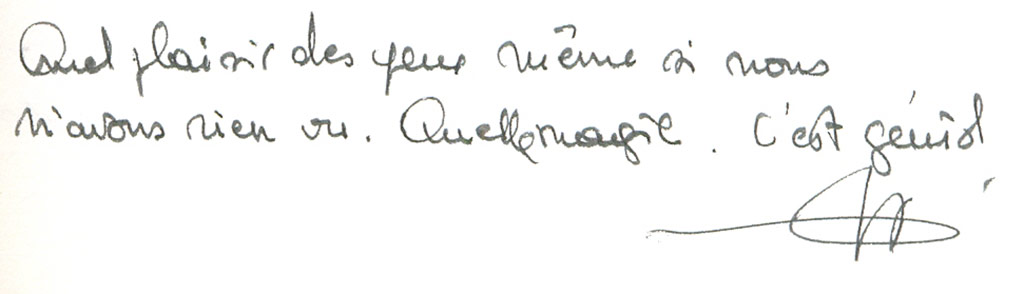 Quel plaisir des yeux même si nous
n'avons rien vu. Quelle magie. C'est génial